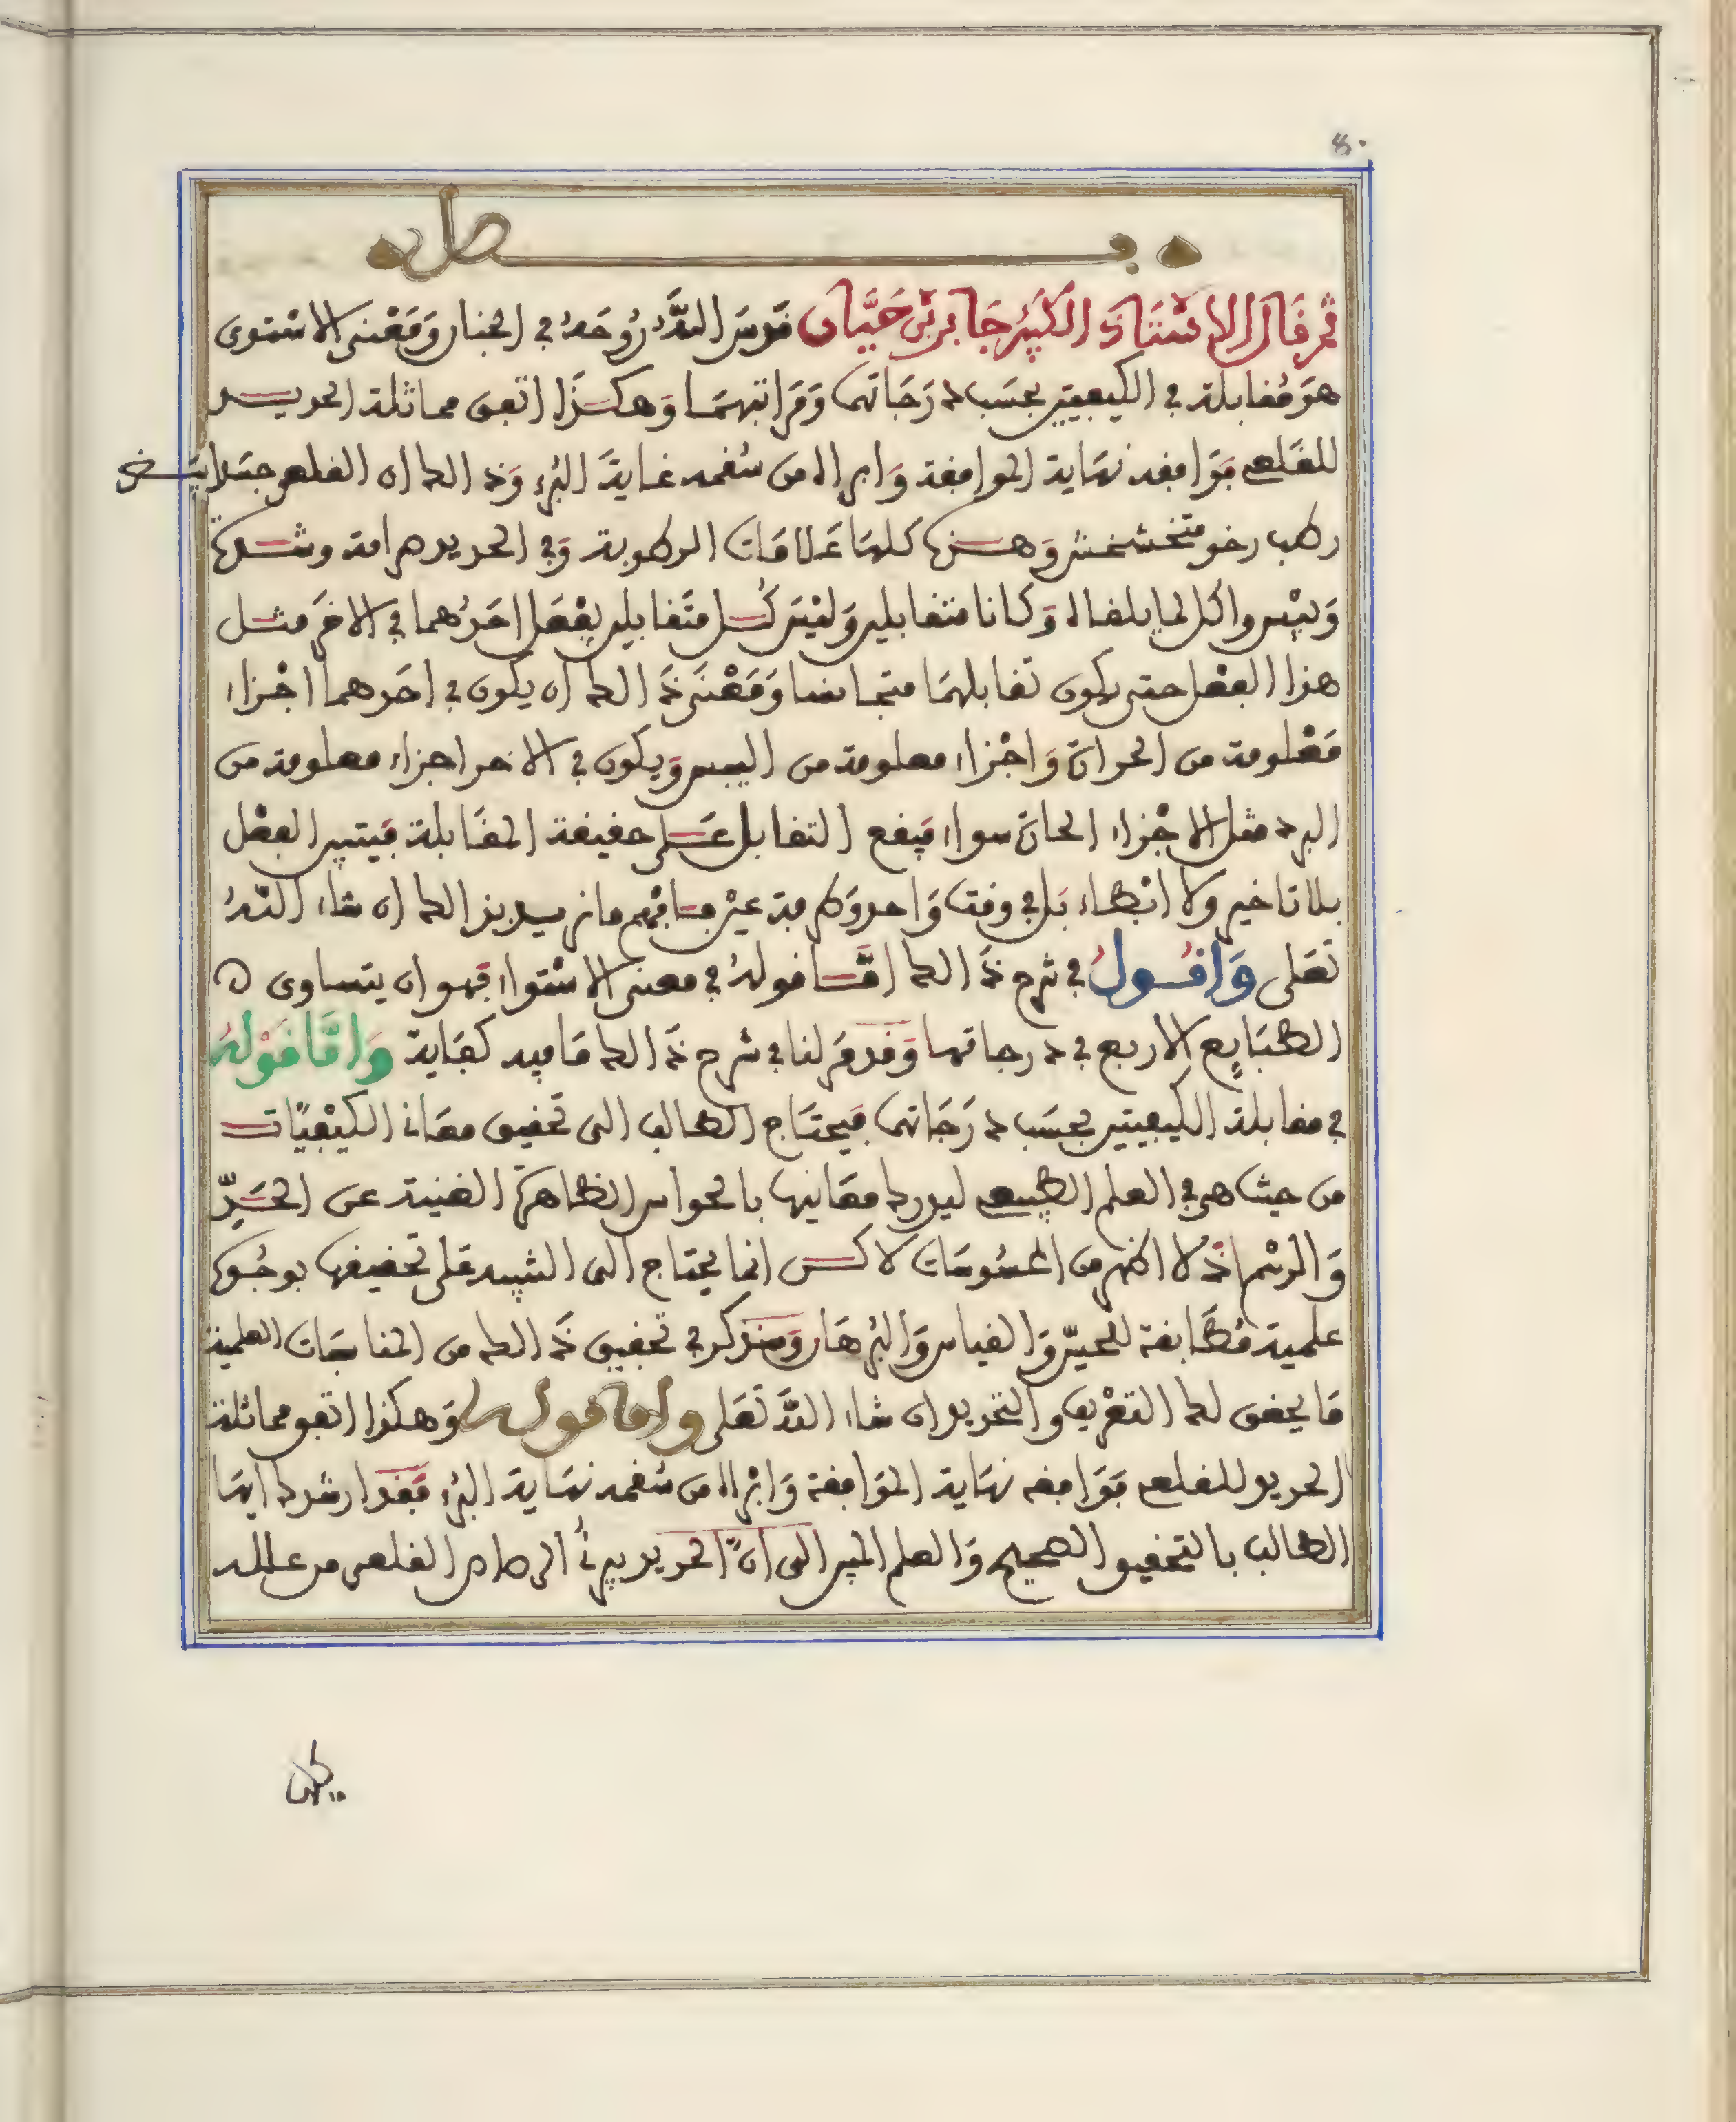 فصل
ثم قال الاسْتَاذ الكَبِيرُ جَابر بْن حَيَّان قَدسَ اللهُ رُوحَهُ في الجنان وَمَعْنى الاسْتوى
هوَ مُقابلة في الكيفيتين بحسَب دَرَجَاتهَا وَمَرَاتبهمَا وَهكذَا اتفق مماثلة الحديد
للقلعي فوَافقه نهَاية الموافقة وَابراه من سُقمه غايةَ البُرء وَذالك ان القلعي جسَد ابيَض
رطب رخو متخشخش وَهذه كلهَا عَلامَات الرطوبة وَفي الحديد صرامة وشدة
وَيبْس واكل لما يلقاه وَكانا متقابلين وَليْسَ كُل متَقابلين يفْعَل احَدُهما في الاخَر مثل
هذا الفعْل حتى يكون تقابلهمَا متجانسا وَمَعْنَى ذَالك ان يكون في احَدهما اجْزاء
مَعْلومة من الحرارة وَاجْزاء معلومة من اليبس وَيكون في الاخر اجزاء معلومة من
البرد مثل الاجْزاء الحارة سواء فيَقع التقابل عَلى حقيقة المقَابلة فيَتبين الفعْل
بلا تاخير ولا ابْطاء بَل في وقت وَاحد وَطرفة عيْن فافهم ما نريد بذالك ان شاء اللهُ
تعَلى وَاقُولُ في شرح ذَالك امَّا قولهُ في معنى الاسْتواء فهو ان يتساوى
الطبَايع الاربع في درجاتها وَقد مَر لنا في شرح ذَالك مَا فيه كفاية وَامَّا قَوْلهُ
في مقابلة الكيفيتين بحسَب دَرَجَاتهَا فيَحتَاج الطالب الى تحَقيق معَاني الكيْفيَّات
من حيث هي في العلم الطبيعي ليدرك معَانيها بالحواس الظاهرة الغنية عن الحَدّ
وَالرسْم اذْ لا اظهر من المحسُوسَات لاكن انما يحتاج الى التنبيه عَلى تحقيقها بوجُوه
علمية مُطَابقة للحسّ وَالقياس وَالبُرهَان وَسَنذكر في تحقيق ذَالك من المناسَبات العلمية
مَا يحقق لك التعْريف والتحديد ان شاء اللهُ تعَلى وامَا قوله وَهكذا اتفق مماثلة
الحديد للقلعي فوَافقه نهَاية الموَافقة وَابْراه من سُقمه نهَاية البُرء فقَد ارشدك ايهَا
الطالب بالتحقيق الصحيح وَالعلم المبين الى انَّ الحديد يبرئ الرصاص القلعي من علله